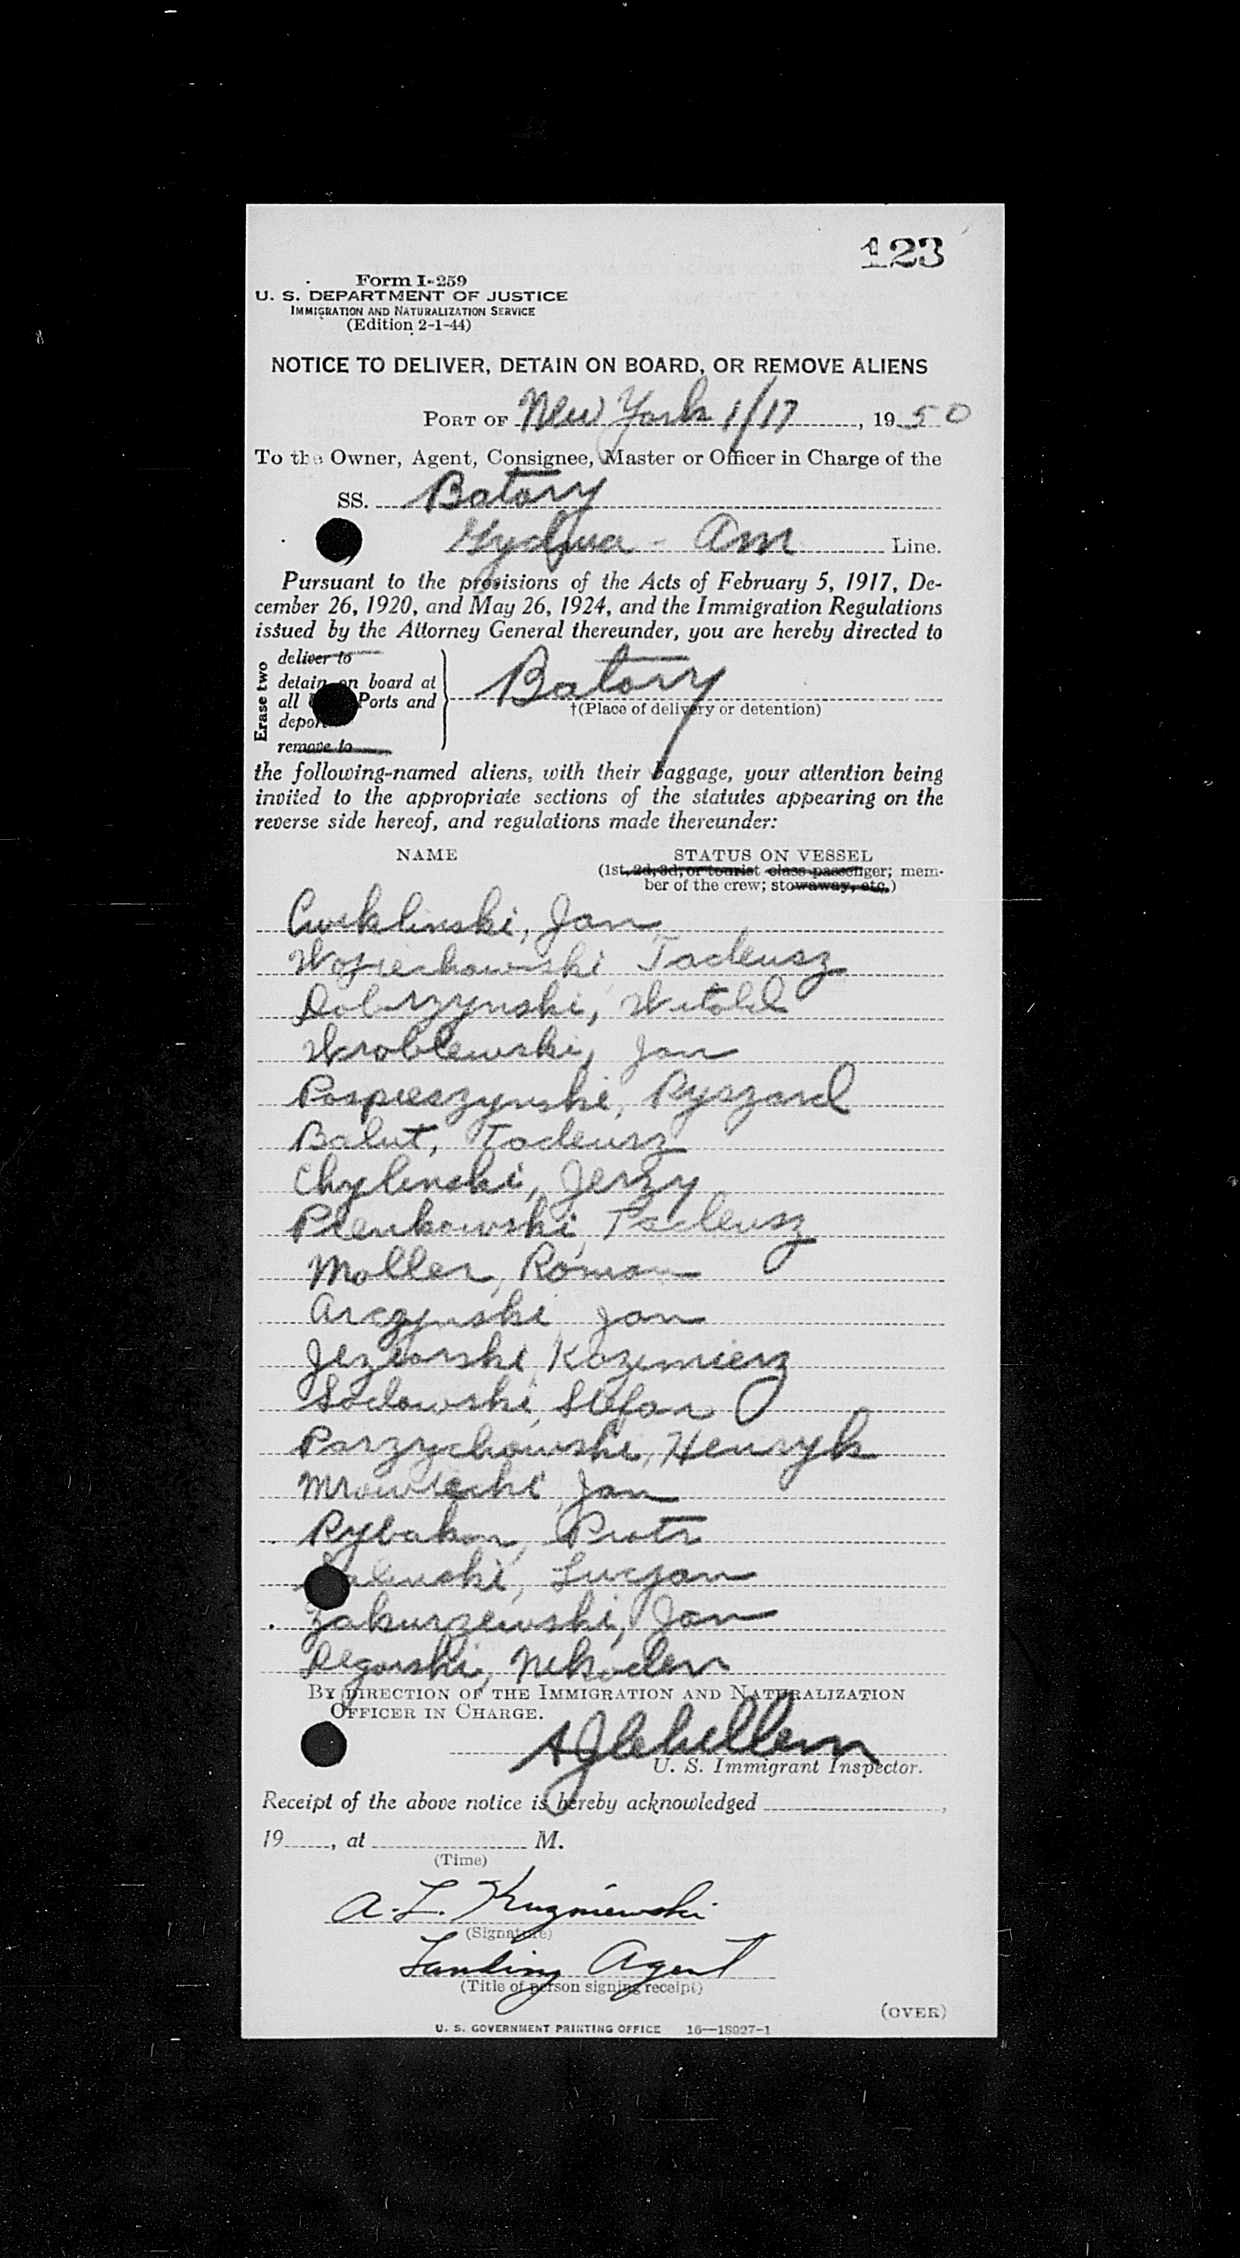 123
Form I-259
U. S. DEPARTMENT OF JUSTICE
IMMIGRATION AND NATURALIZATION SERVICE
(Edition 2-1-44)
NOTICE TO DELIVER, DETAIN ON BOARD, OR REMOVE ALIENS
PORT OF New York 1/17, 1950
To the Owner, Agent, Consignee, Master or Officer in Charge of the
SS. Batory
Gydynia - Am Line.
Pursuant to the provisions of the Acts of February 5, 1917, De-
cember 26, 1920, and May 26, 1924, and the Immigration Regulations
issued by the Attorney General thereunder, you are hereby directed to
Erase two
deliver to
detain on board at
all Ports and
deport
remove to
Batory
†(Place of delivery or detention)
the following-named aliens, with their baggage, your attention being
invited to the appropriate sections of the statutes appearing on the
reverse side hereof, and regulations made thereunder:
NAME STATUS ON VESSEL
(1st, 2d, 3d, or tourist class passenger; mem-
ber of the crew; stowaway, etc.)
Cwiklinski, Jan
Wojciechowski Tadeusz
Dobrzynski, Witold
Wroblewski, Jan
Pospieszynski, Ryszard
Balut, Tadeusz
Chylinski, Jerzy
Pienkowski, Tadeusz
Moller, Roman
Arczynski Jan
Jeziorski, Kazimierz
Sadowski, Stefan
Parzychowski, Henryk
Mrowiecki, Jan
Rybakon, Piotr
Lucjan
Zakurzewski, Jan
Degorski, Nikodem
BY DIRECTION OF THE IMMIGRATION AND NATURALIZATION
OFFICER IN CHARGE.
U. S. Immigrant Inspector.
Receipt of the above notice is hereby acknowledged ,
19 , at M.
(Time)
A. L. Kuzniewski
(Signature)
Landing Agent
(Title of person signing receipt)
(OVER)
U. S. GOVERNMENT PRINTING OFFICE 16—18927-1